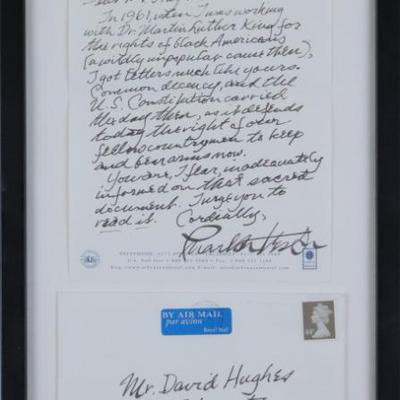 In 1961, when I was working
with Dr. Martin Luther King for
the rights of black Americans
(a wildly unpopular cause then),
I got letters much like yours.
Common decency, and the
U.S. Constitution carried
the day then, as it defends
today the right of our
fellow countrymen to keep
and bear arms now.
You are, I fear, inadequately
informed on that sacred
document. I urge you to
read it. Cordially,
Charlton Heston
TELEPHONE
BY AIR MAIL
par avion
Royal Mail
Mr. David Hughes